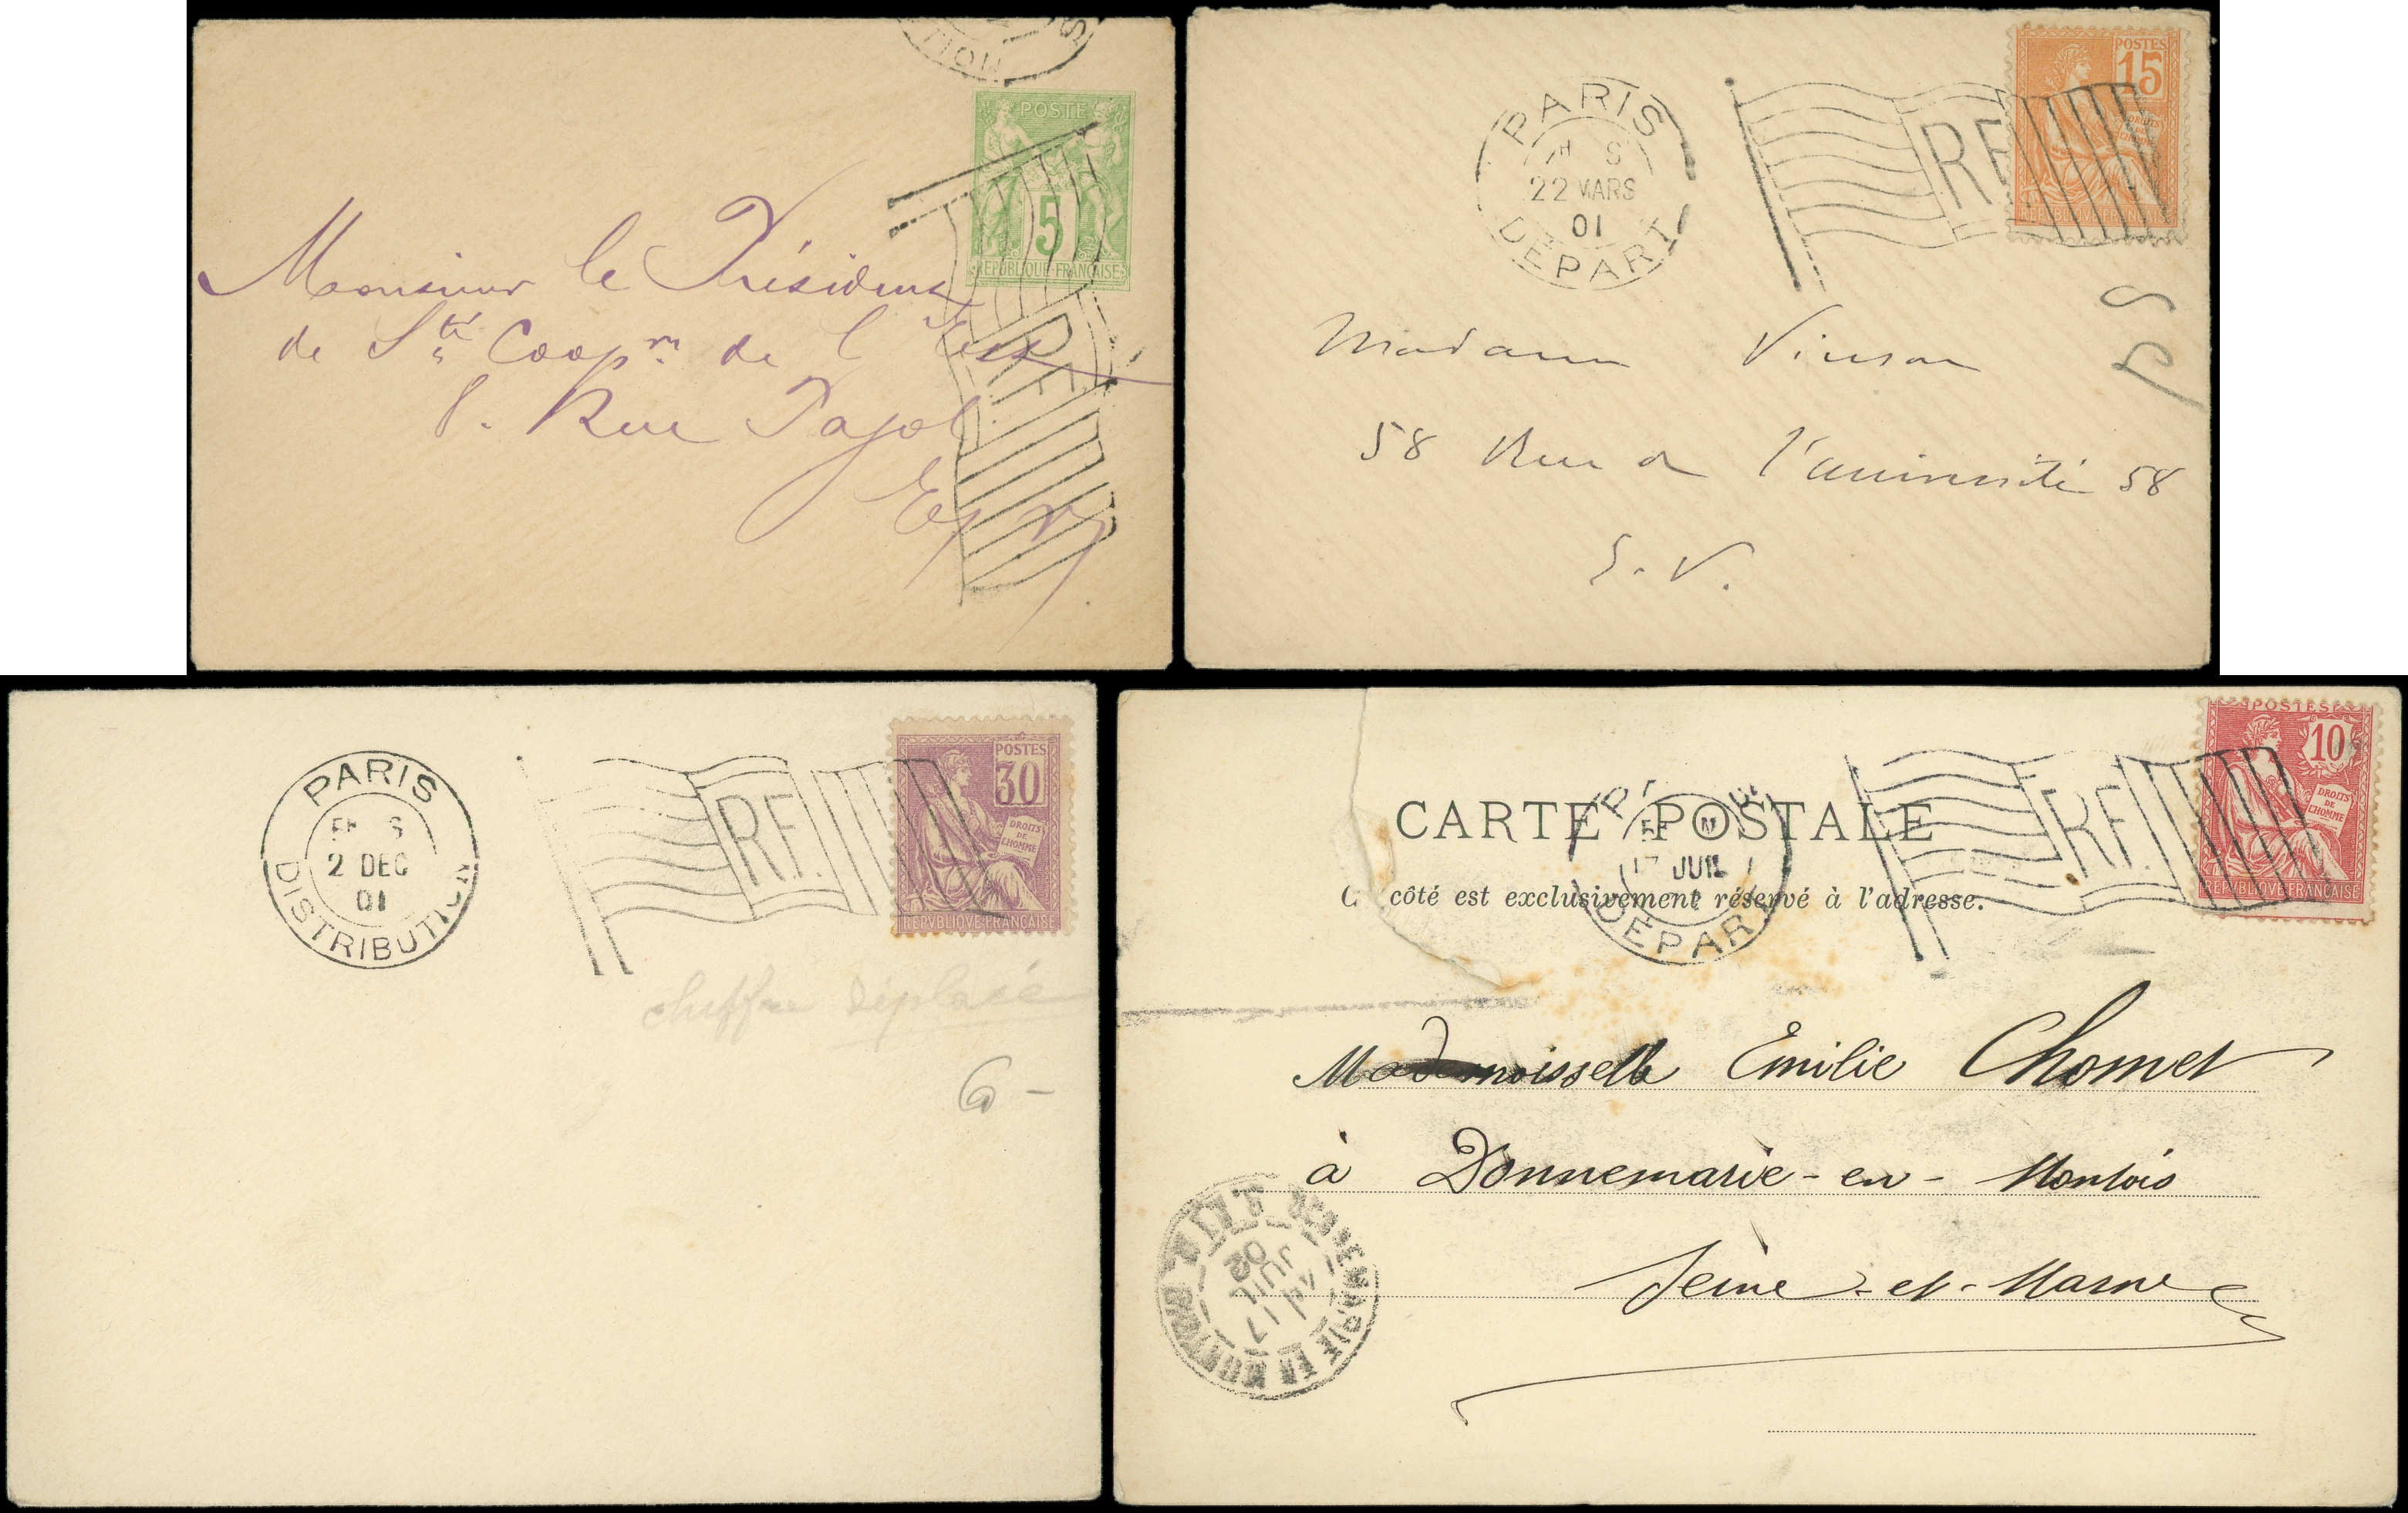 TION
POSTE
5
REPUBLIQUE FRANÇAISE
RF
Monsieur le Président
de Sté Coopm de l'Est
8. Rue Pajol
PARIS
S
22 MARS
01
DEPART
RF
POSTES
15
DROITS
DE
L'HOMME
REPUBLIQUE FRANÇAISE
Madame Vinson
58 Rue de l'université 58
E.V.
PARIS
S
2 DEC
01
DISTRIBUTION
RF.
POSTES
30
DROITS
DE
L'HOMME
REPVBLIQVE FRANÇAISE
chiffre déplacé
6 -
CARTE POSTALE
côté est exclusivement réservé à l'adresse.
17 JUIL
DEPAR
RF.
POSTES
10
DROITS
DE
L'HOMME
REPUBLIQUE FRANÇAISE
Mademoisselle Emilie Chomet
à Donnemarie-en-Montois
Seine-et-Marne
17
JUIL
02